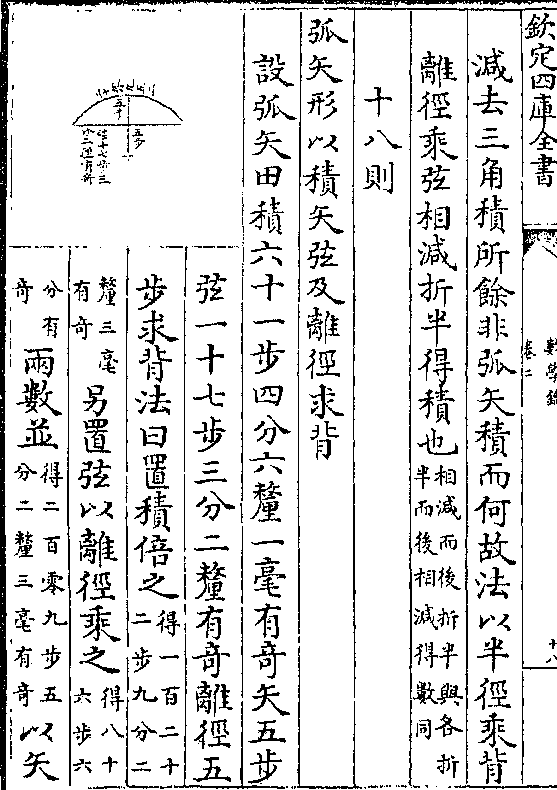 欽定四庫全書
數學鑰
卷二
十八
減去三角積所餘非弧矢積而何故法以半徑乘背
離徑乘弦相減折半得積也相減而後折半與各折半而後相減得數同
十八則
弧矢形以積矢弦及離徑求背
設弧矢田積六十一步四分六釐一毫有奇矢五步
弦一十七步三分二釐有奇離徑五
步求背法曰置積倍之得一百二十二步九分二
釐三毫有奇另置弦以離徑乘之得八十六步六
分有奇兩數並得二百零九步五分二釐三毫有奇以矢